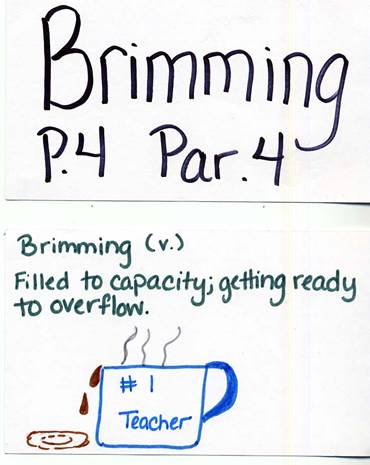 Brimming
P.4 Par. 4
Brimming (v.)
Filled to capacity; getting ready
to overflow.
# 1
Teacher